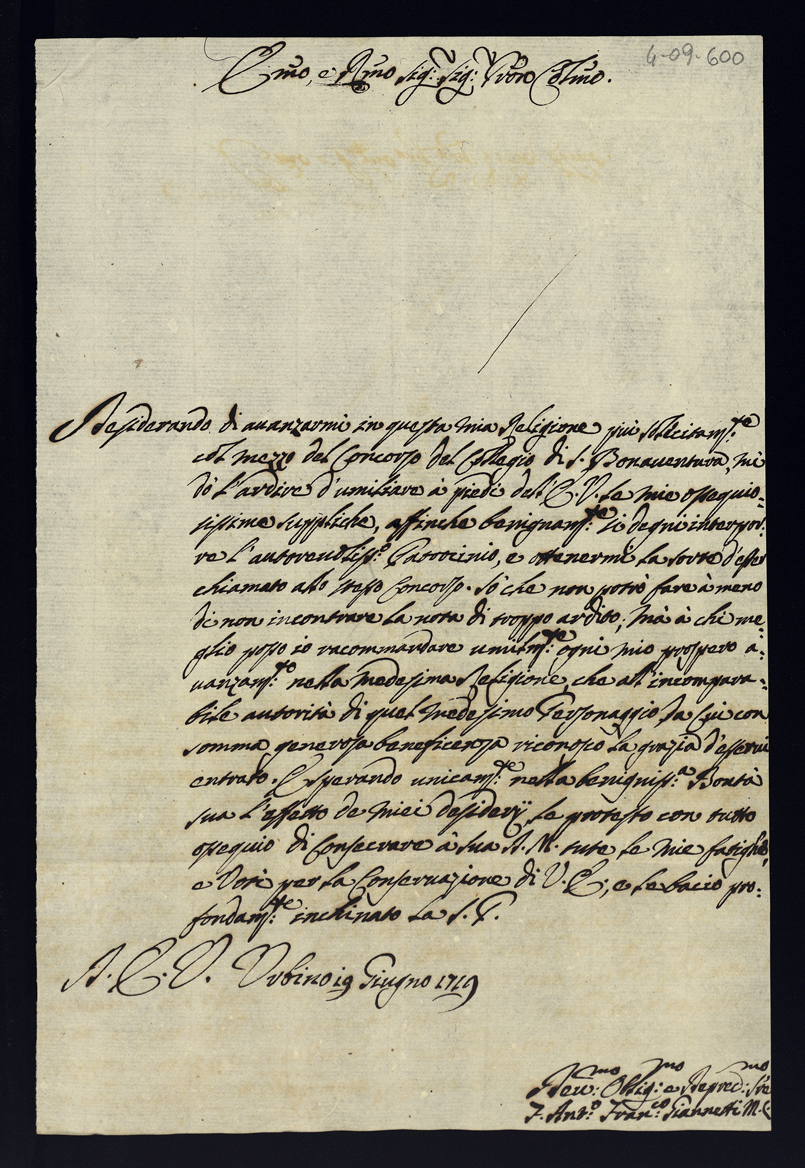 4-09-600
Emo, e Rmo Sig: Sig: Pron Colmo.
Desiderando di avanzarmi in questa mia Religione più sollecitamte
col mezzo del Concorso del Collegio di S. Bonaventura, mi
dò l'ardire d'umiliare à piedi dell'E. V. le mie ossequio=
sissime suppliche, affinche benignamte si degni interpor=
re l'autorevoliss:o Patrocinio, e ottenermi la sorte d'esser
chiamato allo stesso Concorso. Sò che non potrò fare à meno
di non incontrare la nota di troppo ardito; mà à chi me=
glio posso io racommandare umilmte ogni mio prospero a=
vanzamto nella medesima Religione, che all'incompara=
bile autorità di quel medesimo Personaggio, da cui con
somma generosa beneficenza riconosco la grazia d'esservi
entrato. E sperando unicamte nella benigniss:a Bontà
sua l'effetto de miei desiderij, le protesto con tutto
ossequio di consecrare à sua D. M. tute le mie fatighe,
e Voti per la Conservazione di V. E., e le bacio pro=
fondamte inchinato la S. P.
D. E. V. Urbino 19 Giugno 1719
Devmo: Obligmo: e
F. Anto: Franco: Giannetti M. C.